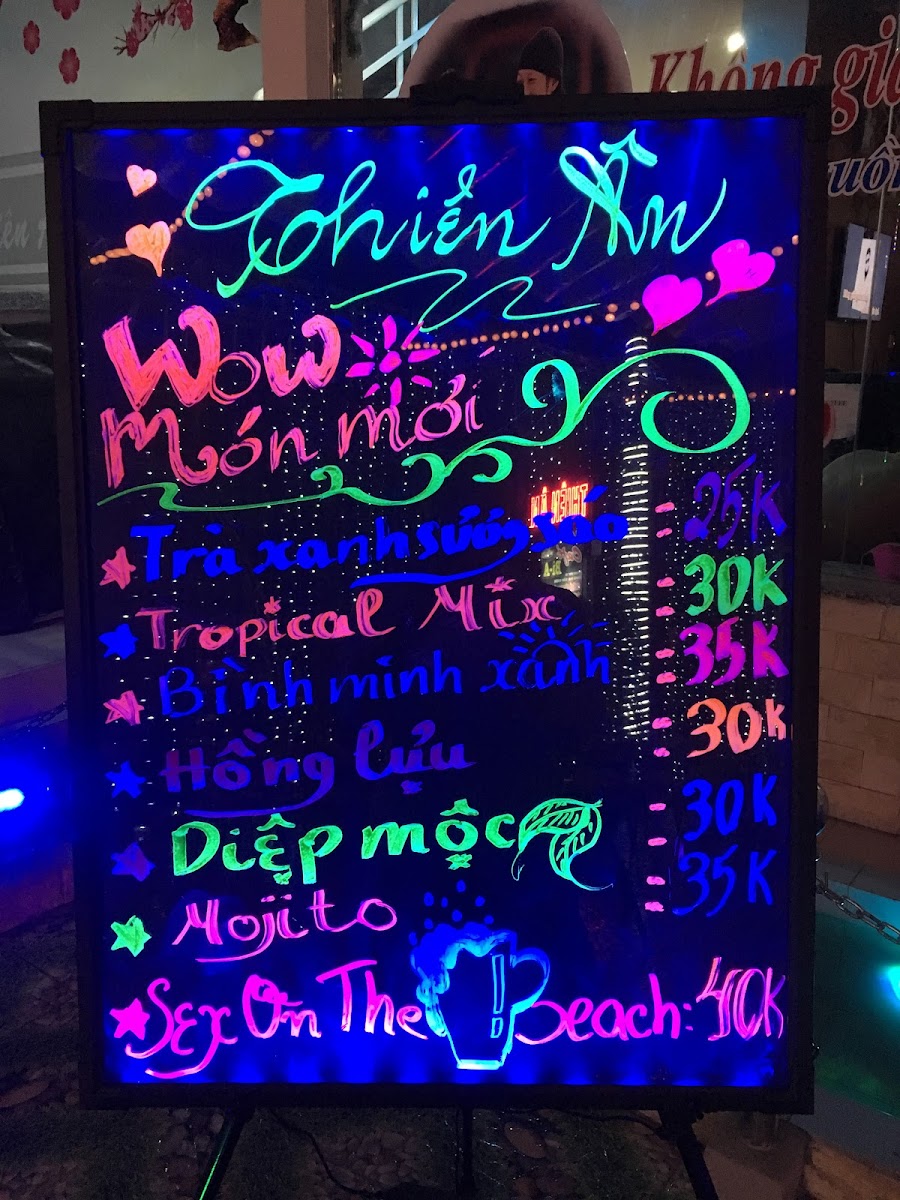 Không gi
uồn
Thiên Ân
Wow
Món mới
Trà xanh sương sáo : 25K
Tropical Mix : 30K
Bình minh xanh : 35K
Hồng lựu : 30K
Diệp mộc : 30K
Mojito : 35K
Sex On The Beach: 40K